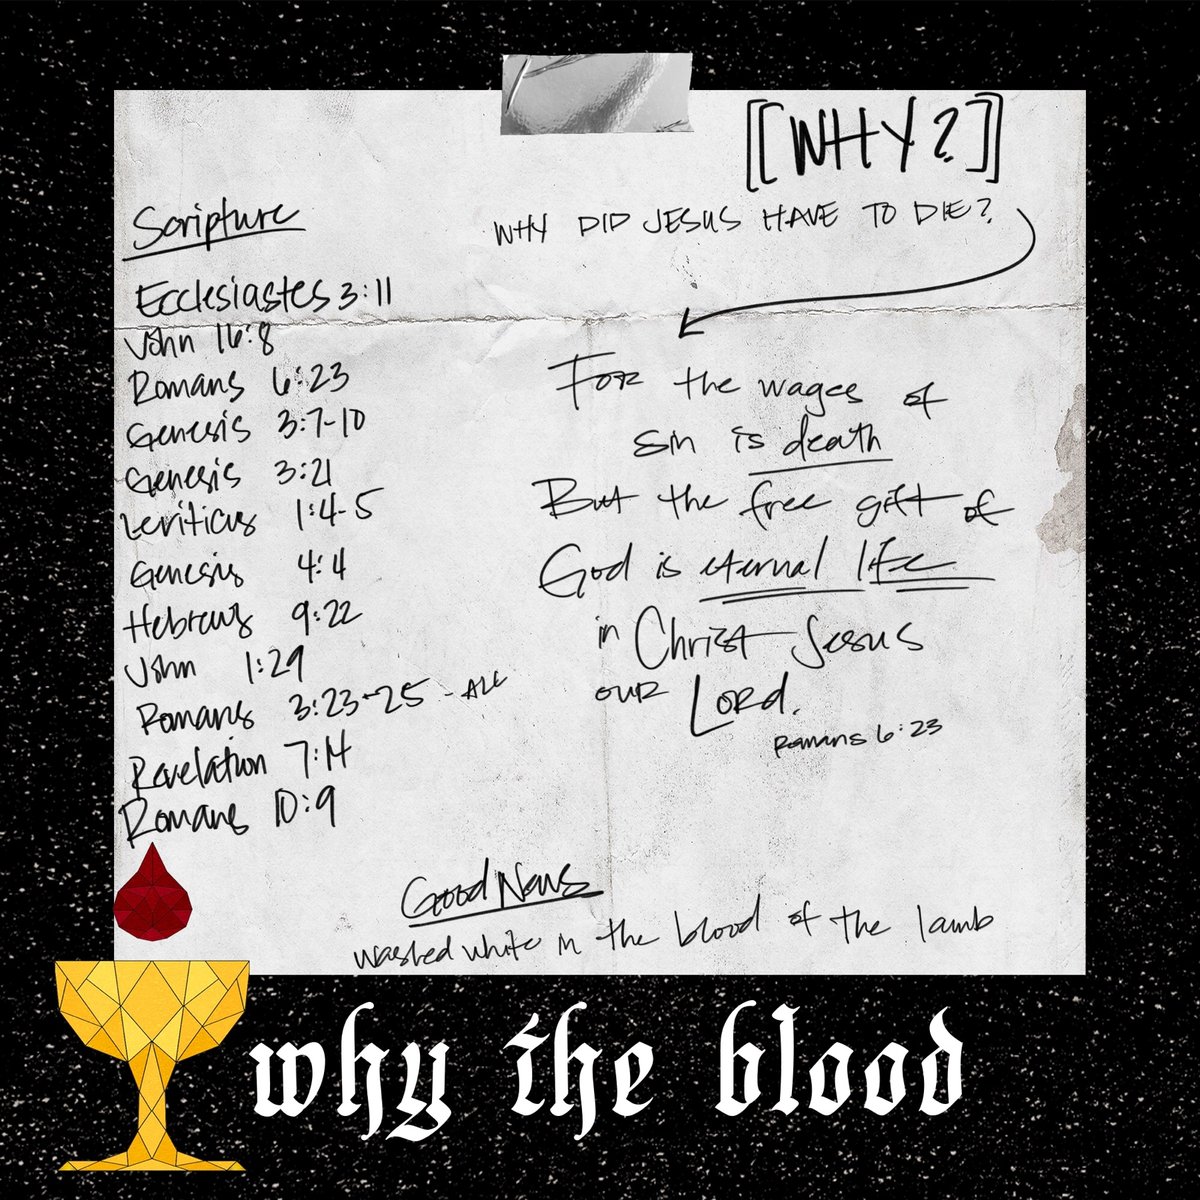 [[WHY?]]
WHY DID JESUS HAVE TO DIE?
Scripture
Ecclesiastes 3:11
John 16:8
Romans 6:23
Genesis 3:7-10
Genesis 3:21
Leviticus 1:4-5
Genesis 4:4
Hebrews 9:22
John 1:29
Romans 3:23-25 - ALL
Revelation 7:14
Romans 10:9
For the wages of
sin is death
But the free gift of
God is eternal life
in Christ Jesus
our Lord.
Romans 6:23
Good News
washed white in the blood of the lamb
why the blood